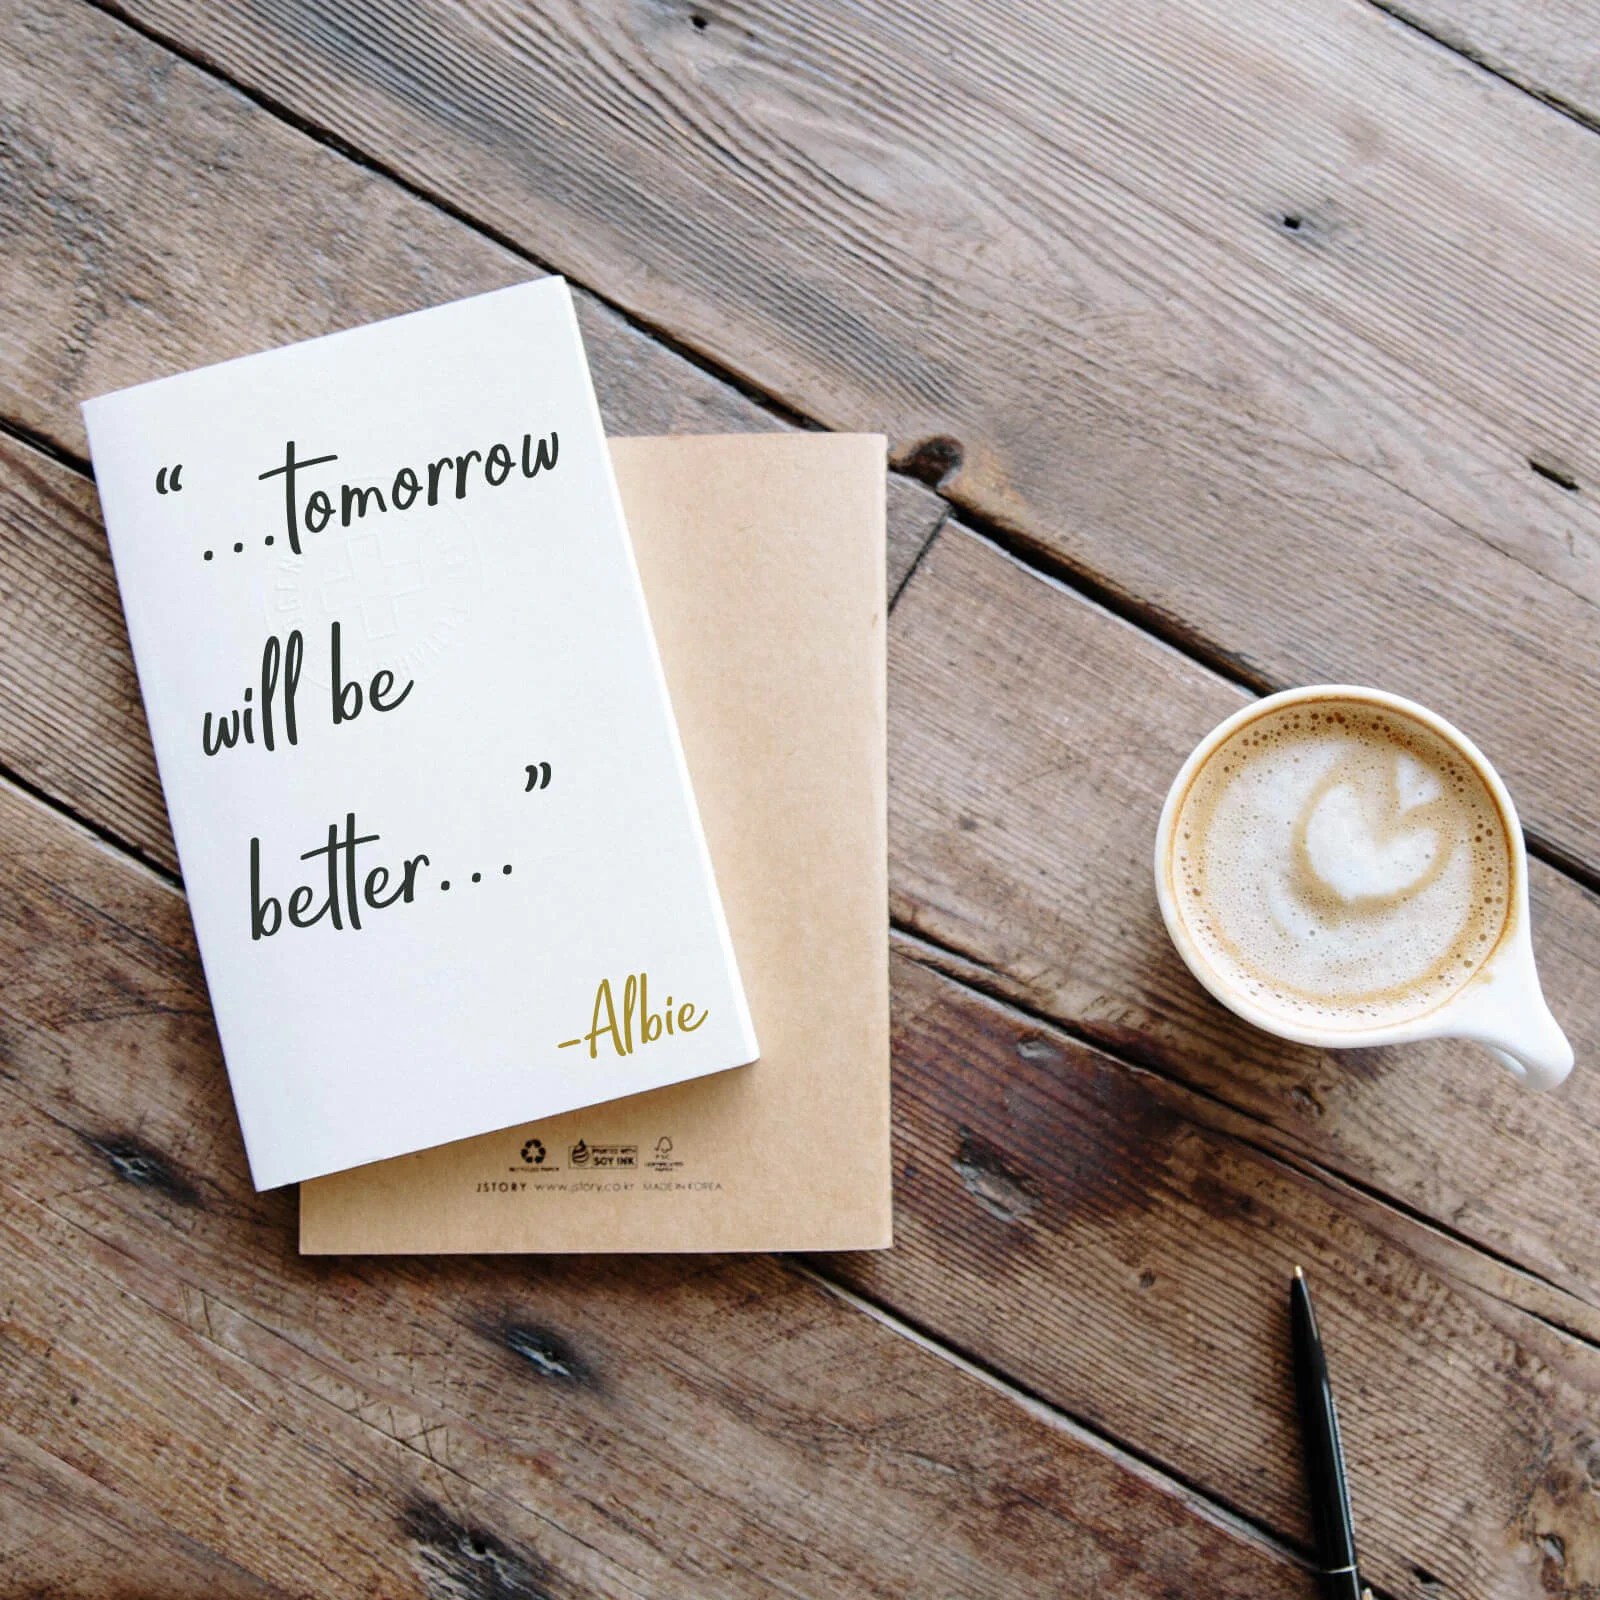 “ ...tomorrow
will be
better... ”
-Albie
PRINTED WITH
SOY INK
FSC
RECYCLED PAPER
JSTORY www.jstory.co.kr MADE IN KOREA